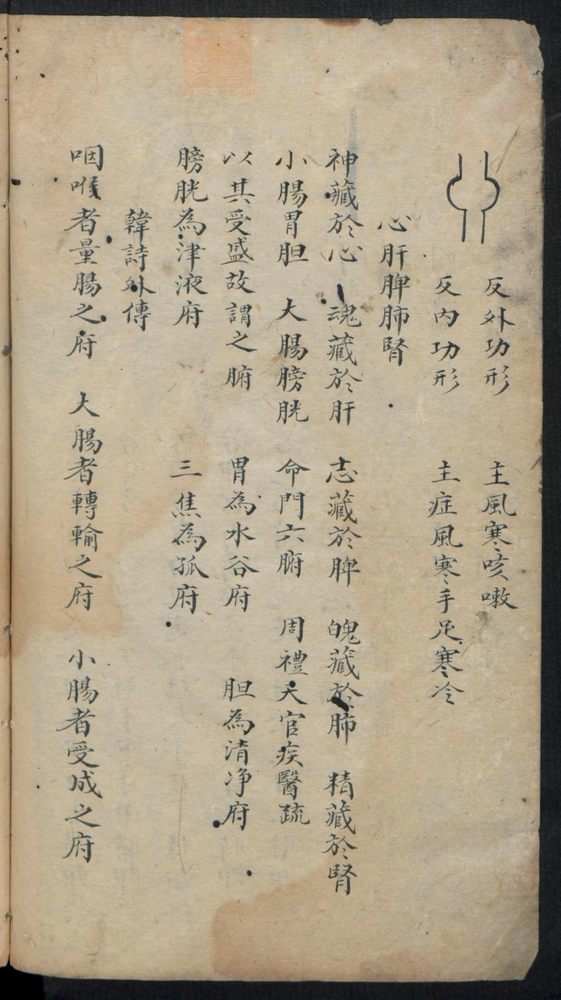 反外功形 主風寒咳嗽
反內功形 主症風寒手足寒冷
心肝脾肺腎
神藏於心 魂藏於肝 志藏於脾 魄藏於肺 精藏於腎
小腸胃胆 大腸膀胱 命門六腑 周禮天官疾醫疏
以其受盛故謂之腑 胃為水谷府 胆為清净府
膀胱為津液府 三焦為孤府
韓詩外傳
咽喉者量腸之府 大腸者轉輸之府 小腸者受成之府